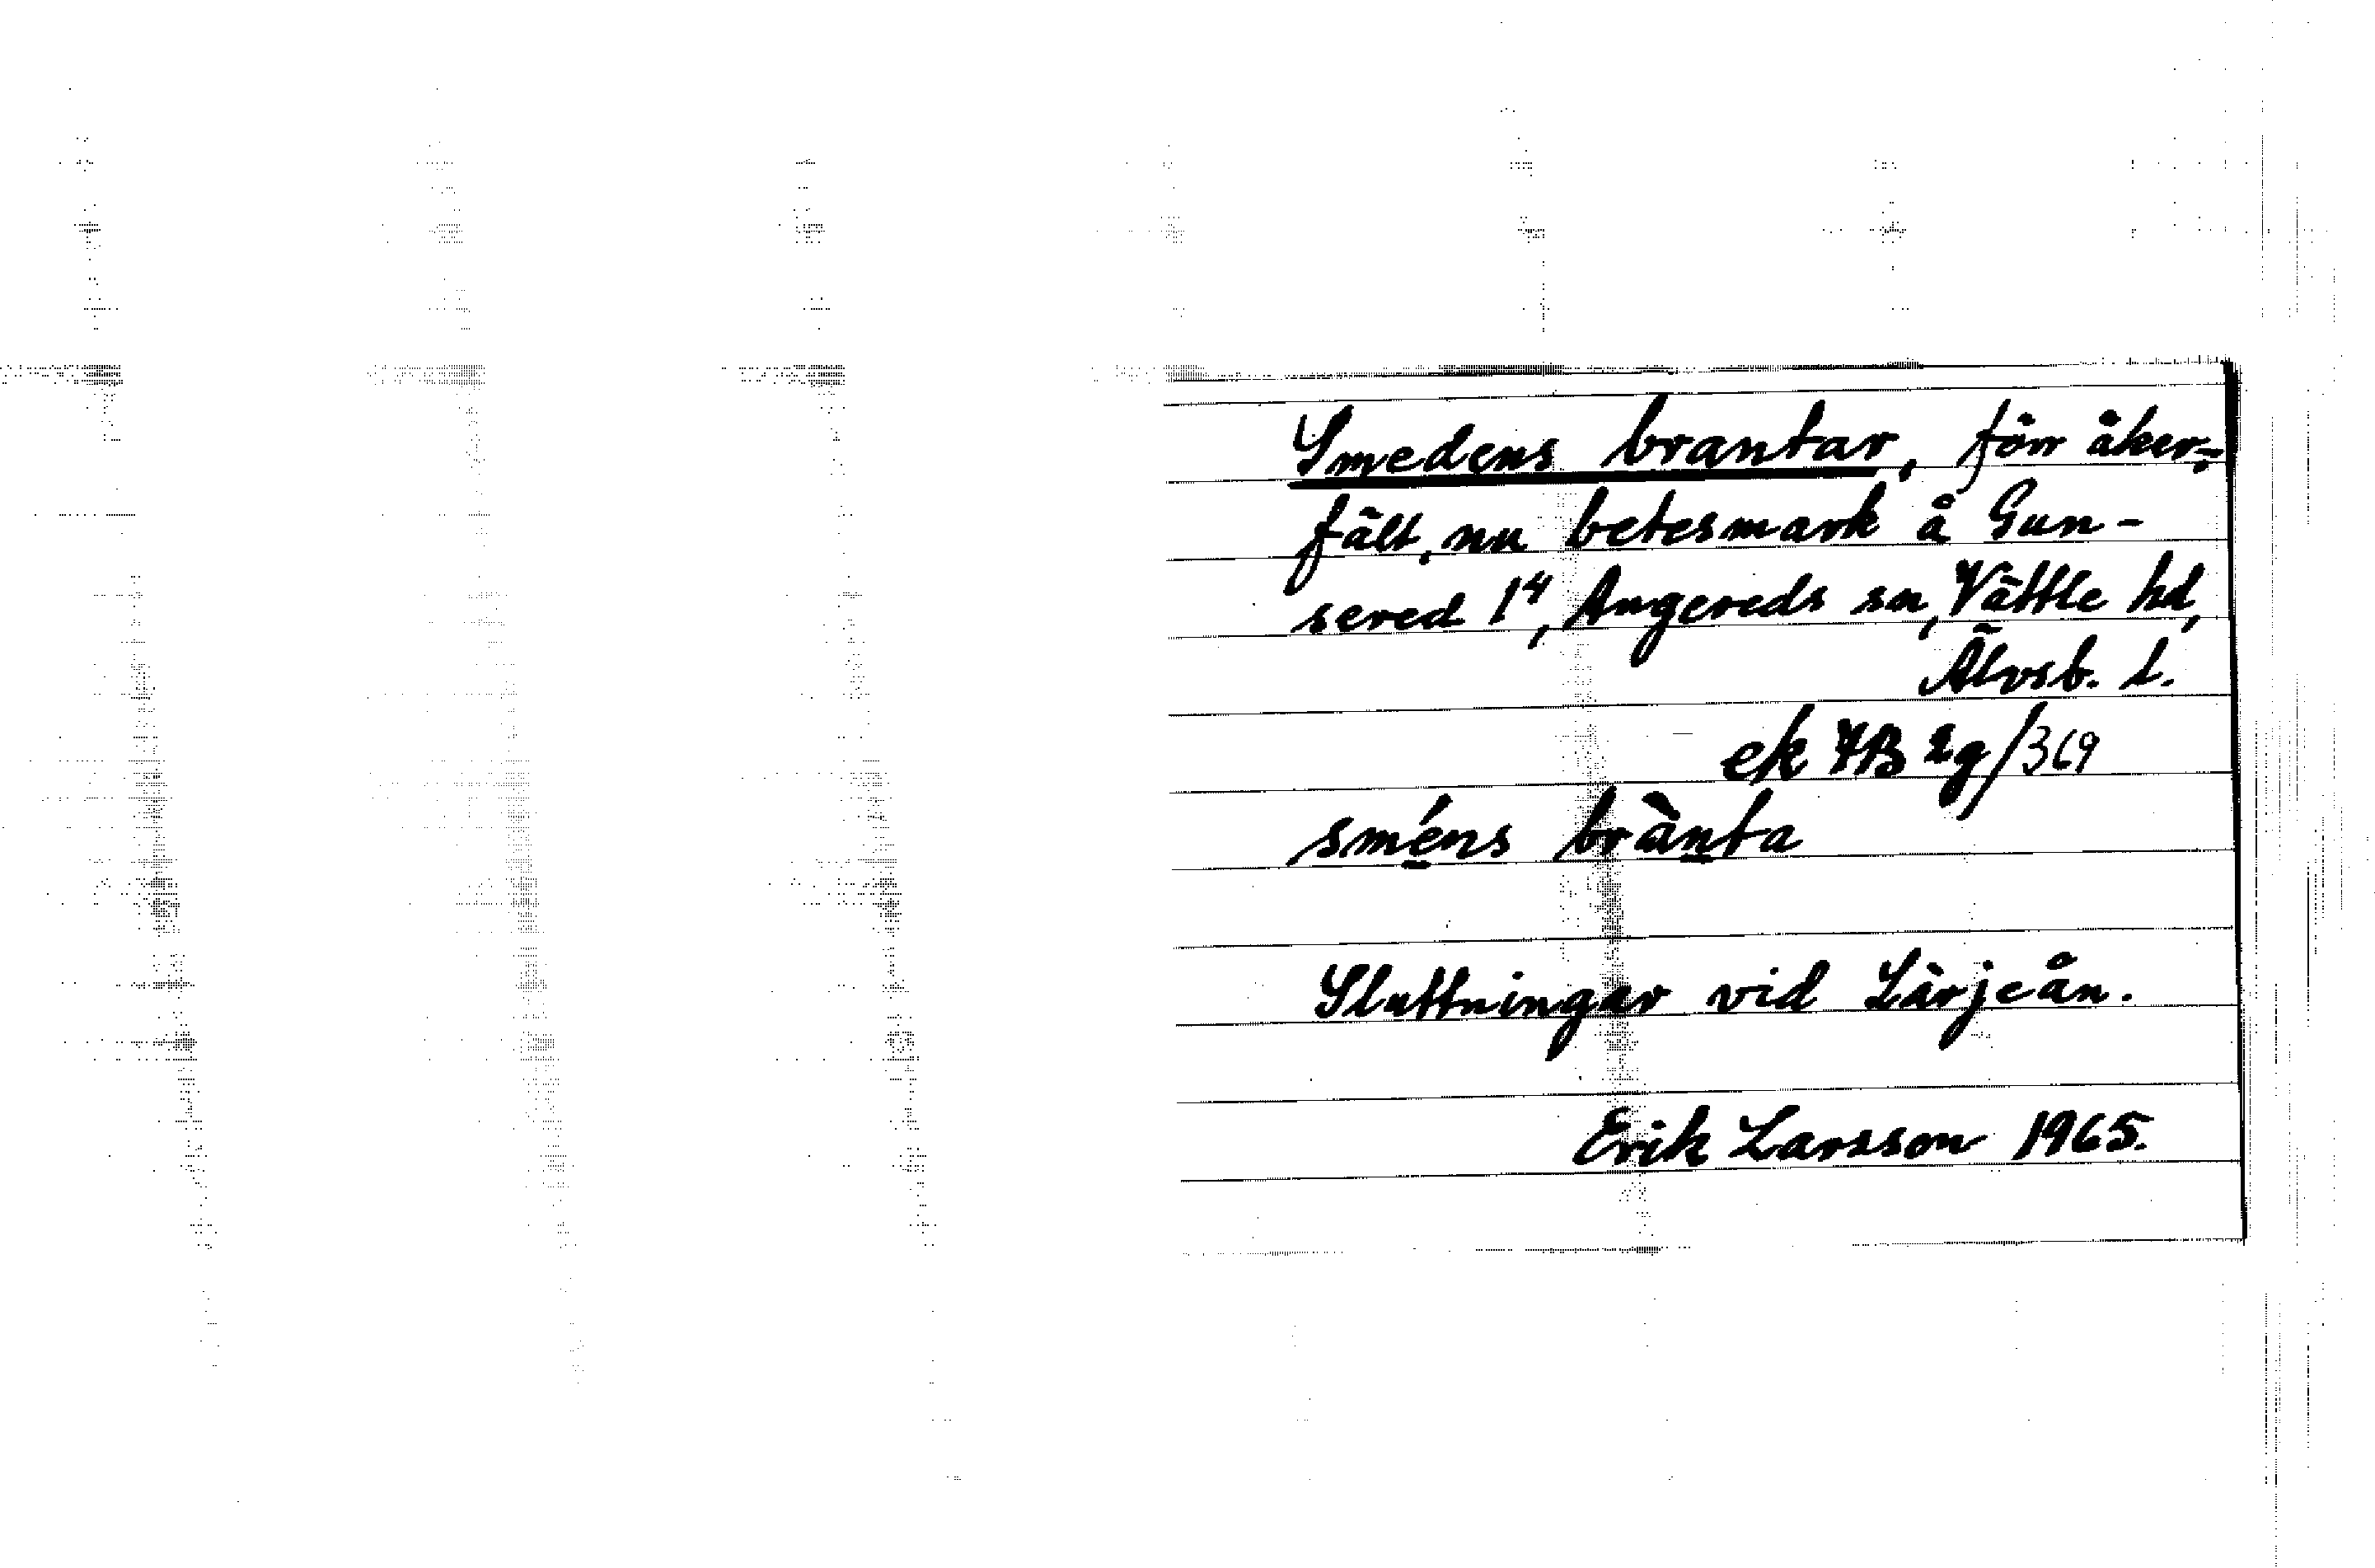 Smedens brantar, förr åker-
fält, nu betesmark å Gun-
sered 1⁴, Angereds sn, Vättle hd,
Älvsb. L.
ek 7B 2g/369
sméns brànta
Sluttningar vid Lärjeån.
Erik Larsson 1965.